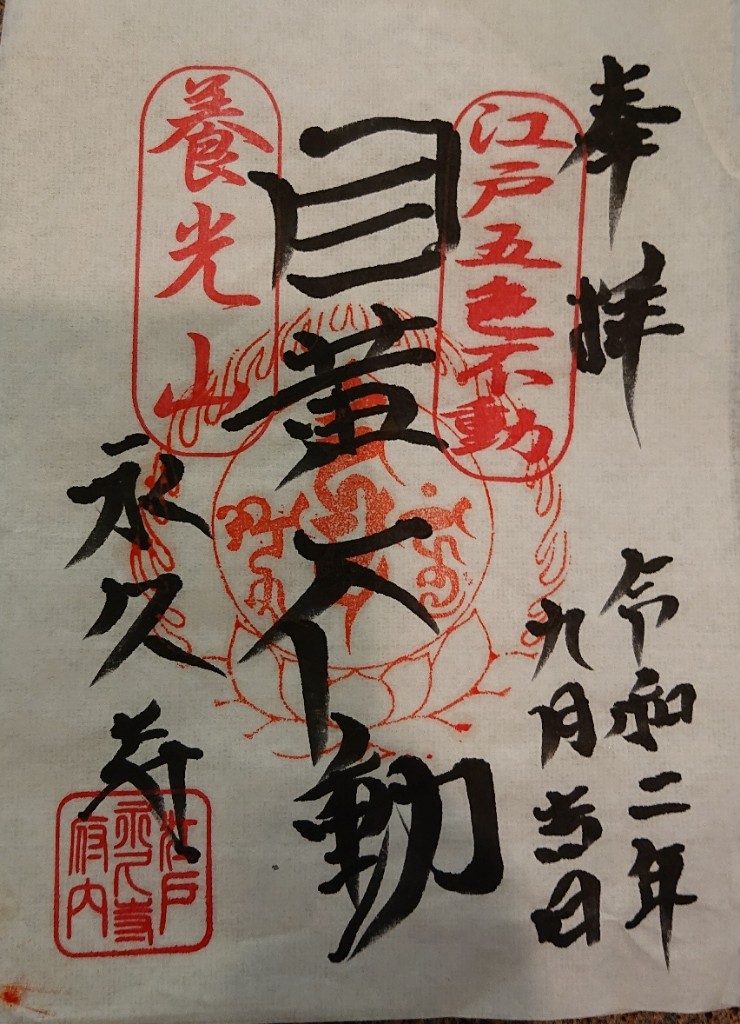 奉拝
令和二年
九月吉日
江戸五色不動
目黄不動
養光山
永久寺
江戸
永久寺
府内